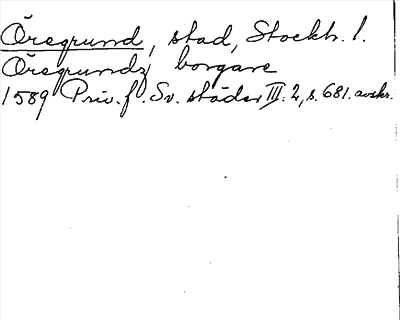 Öregrund, stad, Stockh. l.
Öregrundz borgare
1589 Priv. f. Sv. städer III. 2, s. 681. avskr.